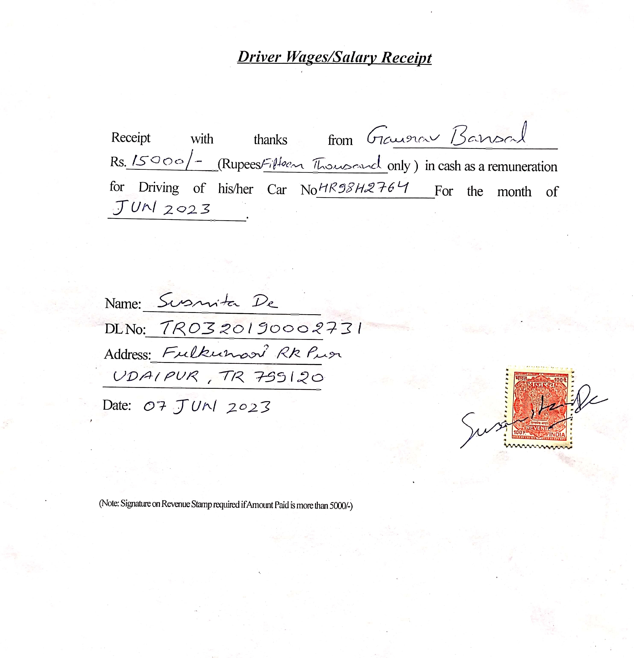 Driver Wages/Salary Receipt
Receipt with thanks from Gaurav Bansal
Rs. 15000/- (Rupees Fifteen Thousand only ) in cash as a remuneration
for Driving of his/her Car No HR98H2764 For the month of
JUN 2023.
Name: Susmita De
DL No: TR0320190002731
Address: Fulkumari RK Pur
UDAIPUR, TR 799120
Date: 07 JUN 2023
Susmita De
INDIA
(Note: Signature on Revenue Stamp required if Amount Paid is more than 5000/-)